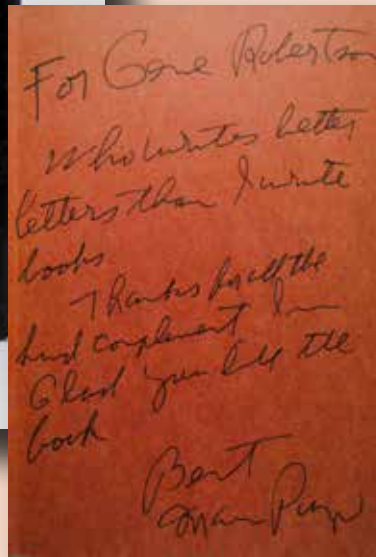 For Gene Robertson
Who writes better
letters than I write
books.
Thanks for all the
kind compliment I'm
Glad you like the
book
Best
Mario Puzo